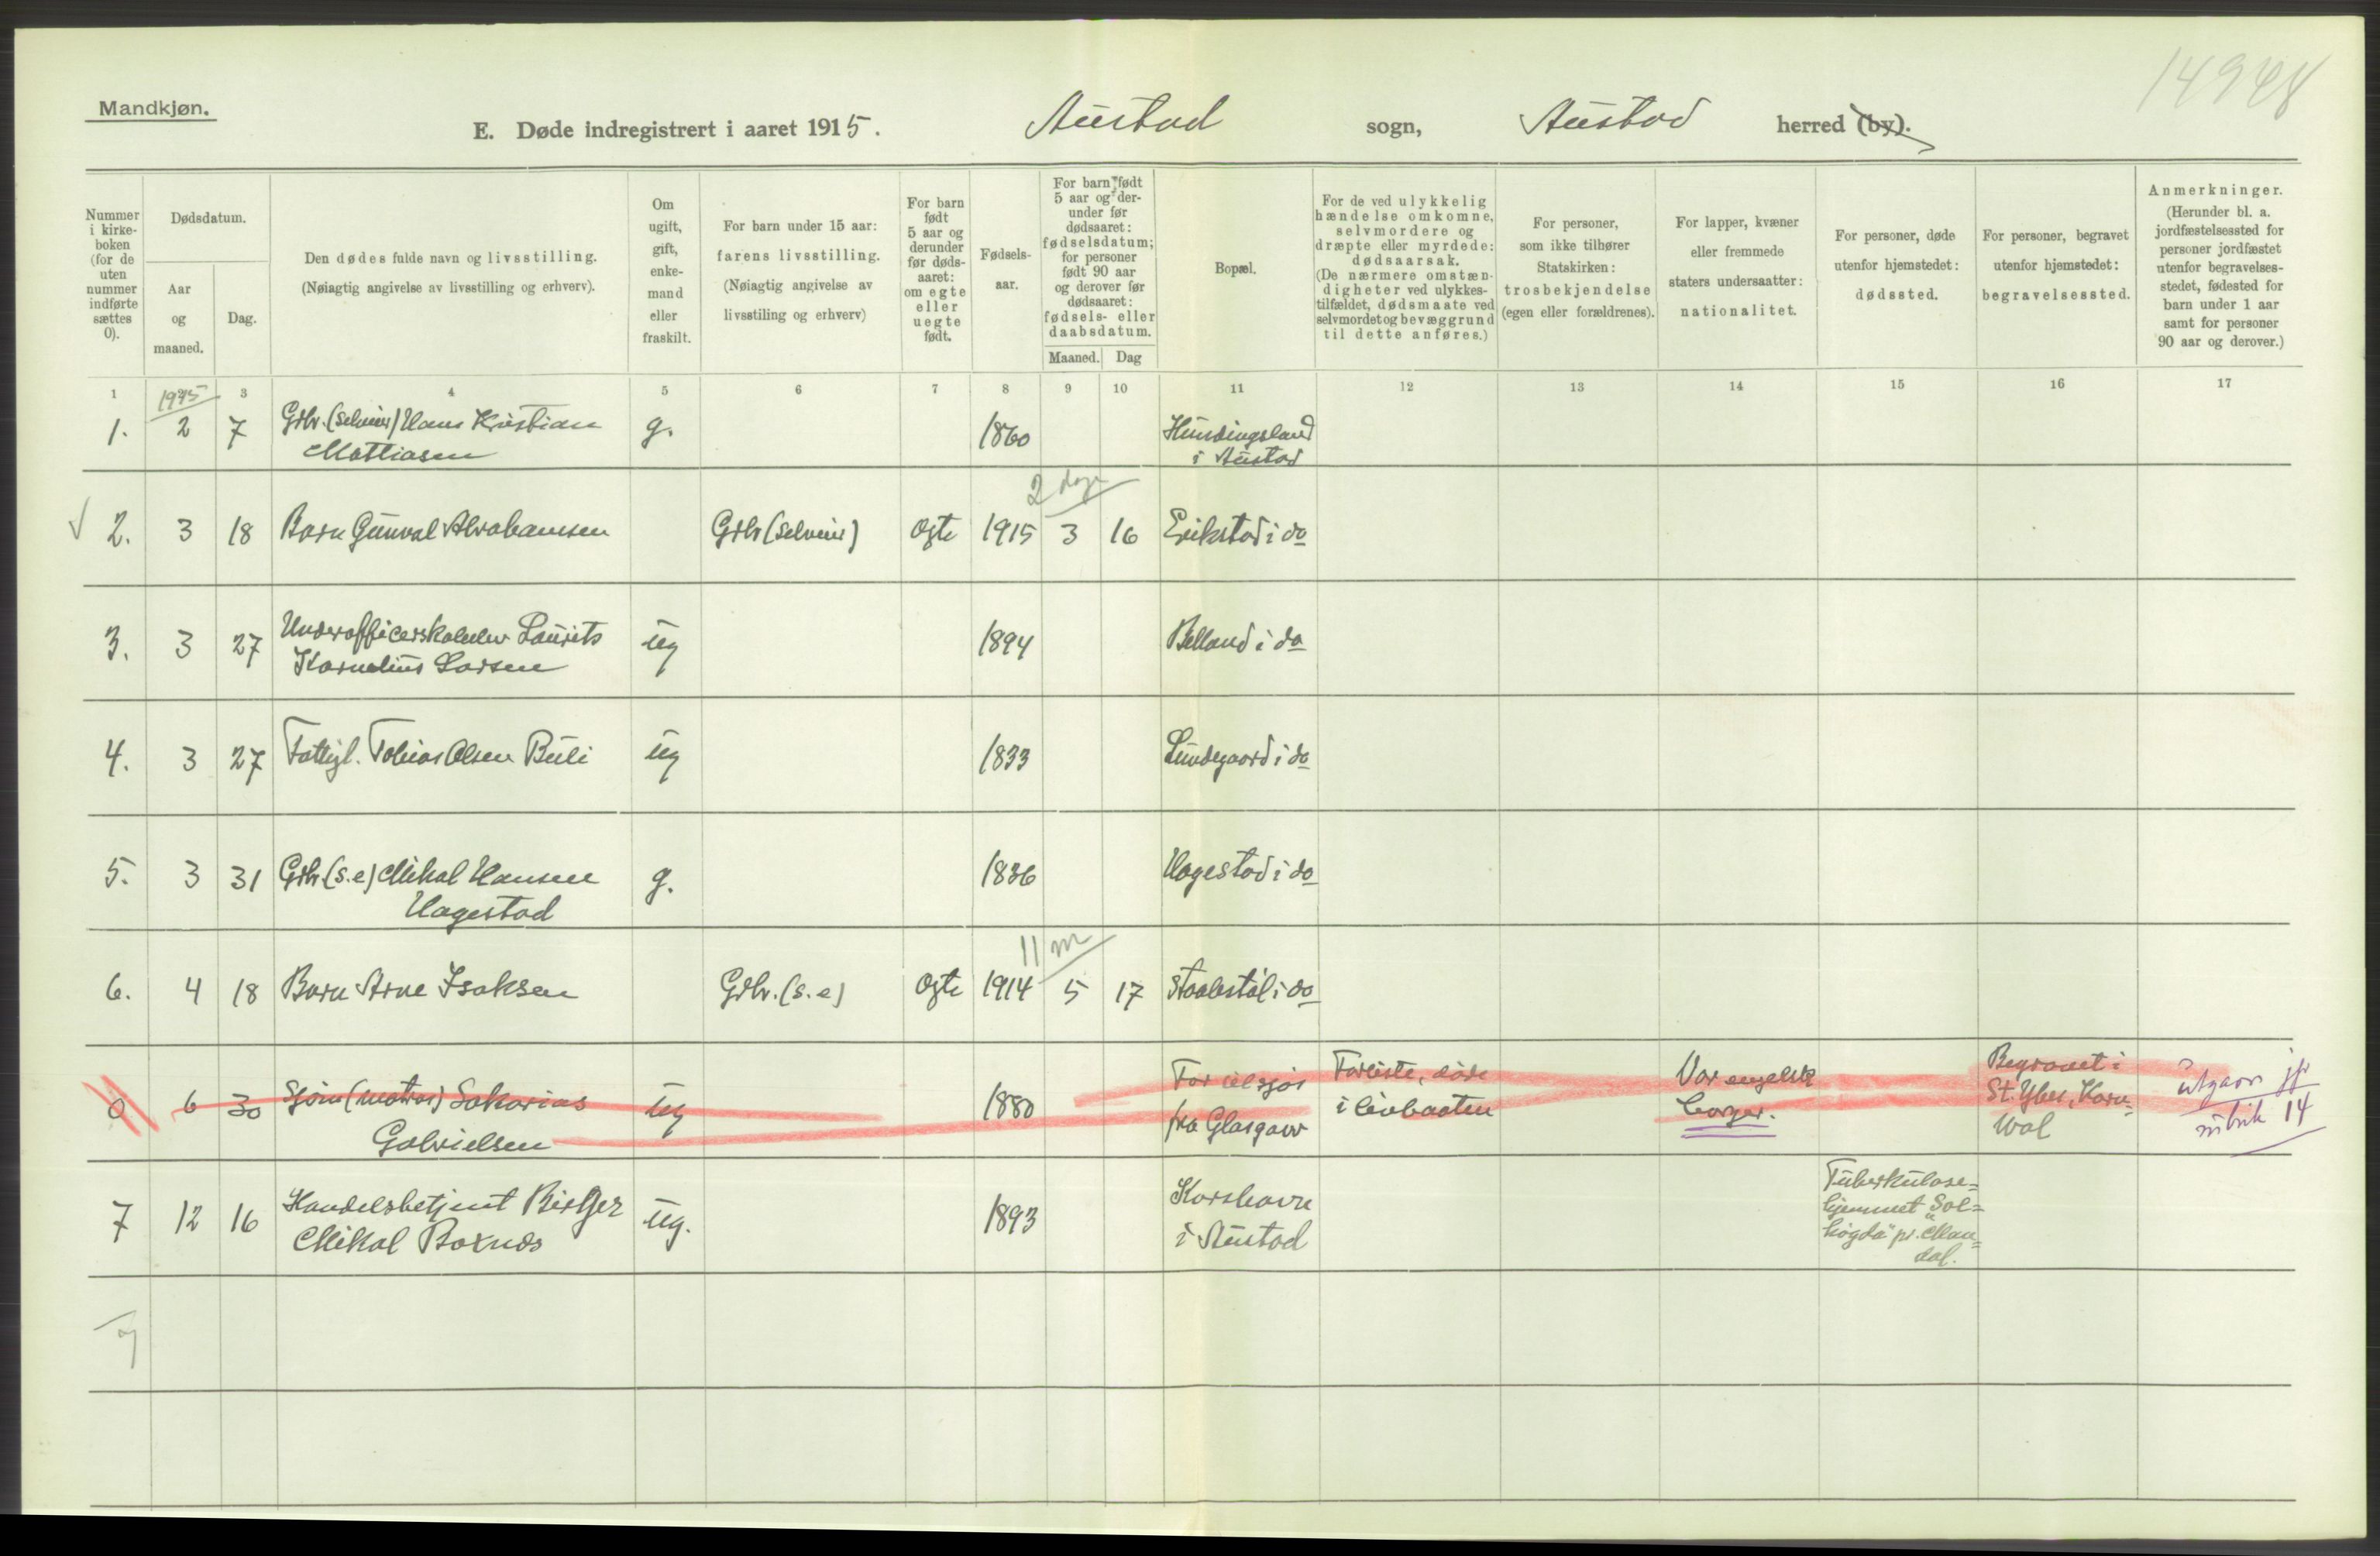 14948
Mandkjøn.
E. Døde indregistrert i aaret 1915. Austad sogn, Austad herred (by).
Nummer i kirke-boken (for de uten nummer indførte sættes 0).
Dødsdatum.
Aar og maaned.
Dag.
Den dødes fulde navn og livsstilling.
(Nøiagtig angivelse av livsstilling og erhverv).
Om ugift, gift, enke-mand eller fraskilt.
For barn under 15 aar: farens livsstilling.
(Nøiagtig angivelse av livsstiling og erhverv)
For barn født 5 aar og derunder før døds-aaret: om egte eller uegte født.
Fødsels-aar.
For barn født 5 aar og der-under før dødsaaret: fødselsdatum; for personer født 90 aar og derover før dødsaaret: fødsels- eller daabsdatum.
Maaned. Dag
Bopæl.
For de ved ulykkelig hændelse omkomne, selvmordere og dræpte eller myrdede: dødsaarsak.
(De nærmere omstæn-digheter ved ulykkes-tilfældet, dødsmaate ved selvmordet og bevæggrund til dette anføres.)
For personer, som ikke tilhører Statskirken: trosbekjendelse (egen eller forældrenes).
For lapper, kvæner eller fremmede staters undersaatter: nationalitet.
For personer, døde utenfor hjemstedet: dødssted.
For personer, begravet utenfor hjemstedet: begravelsessted.
Anmerkninger.
(Herunder bl. a. jordfæstelsessted for personer jordfæstet utenfor begravelses-stedet, fødested for barn under 1 aar samt for personer 90 aar og derover.)
1 3 4 5 6 7 8 9 10 11 12 13 14 15 16 17
1915
1. 2 7 Grbr. (selveier) Hans Kristian g. 1860 Hundingsland
Mattiasen i Austad
2 dage
2. 3 18 Barn Gunval Abrahamsen Grbr (selveier) Egte 1915 3 16 Erikstad i do
3. 3 27 Underofficerskoleelev Laurits ug 1894 Belland i do
Kornelius Larsen
4. 3 27 Fattigl. Tobias Olsen Buli ug 1833 Lundegaard i do
5. 3 31 Grbr. (s.e) Mikal Hansen g. 1836 Hagestad i do
Hagestad
11 m
6. 4 18 Barn Arne Isaksen Grbr. (s.e) Egte 1914 5 17 Staalestøl i do
0 6 30 Sjøm (matros) Sakarias ug 1880 For tilsjøs Forliste, døde Var engelsk Begravet i utgaar jfr
Gabrielsen fra Glasgow i livbaaten borger. St. Ybes, Korn= rubrik 14
wal
7 12 16 Handelsbetjent Birger ug. 1893 Korshavn Tuberkulose=
Mikal Boxnæs i Austad hjemmet "Sol=
høgda" pr. Man=
dal.